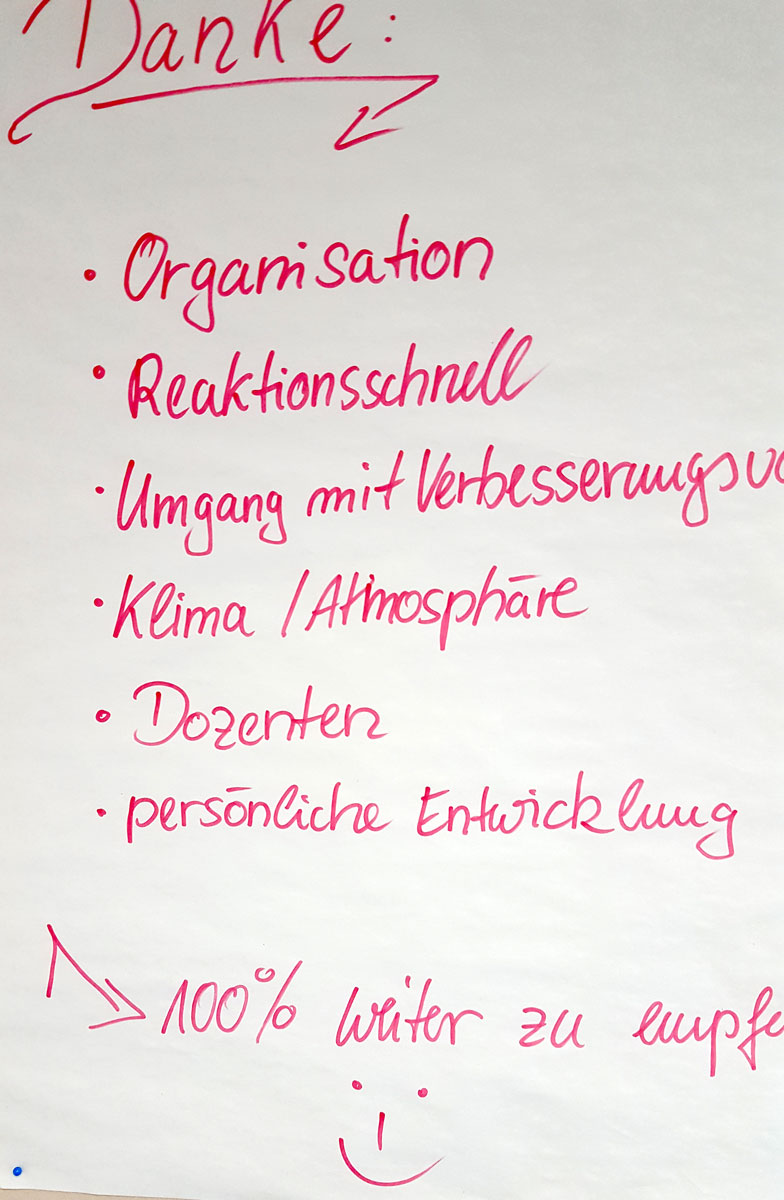 Danke:
• Organisation
• Reaktionsschnell
• Umgang mit Verbesserungsvo
• Klima / Atmosphäre
• Dozenten
• persönliche Entwicklung
100% weiter zu empfe